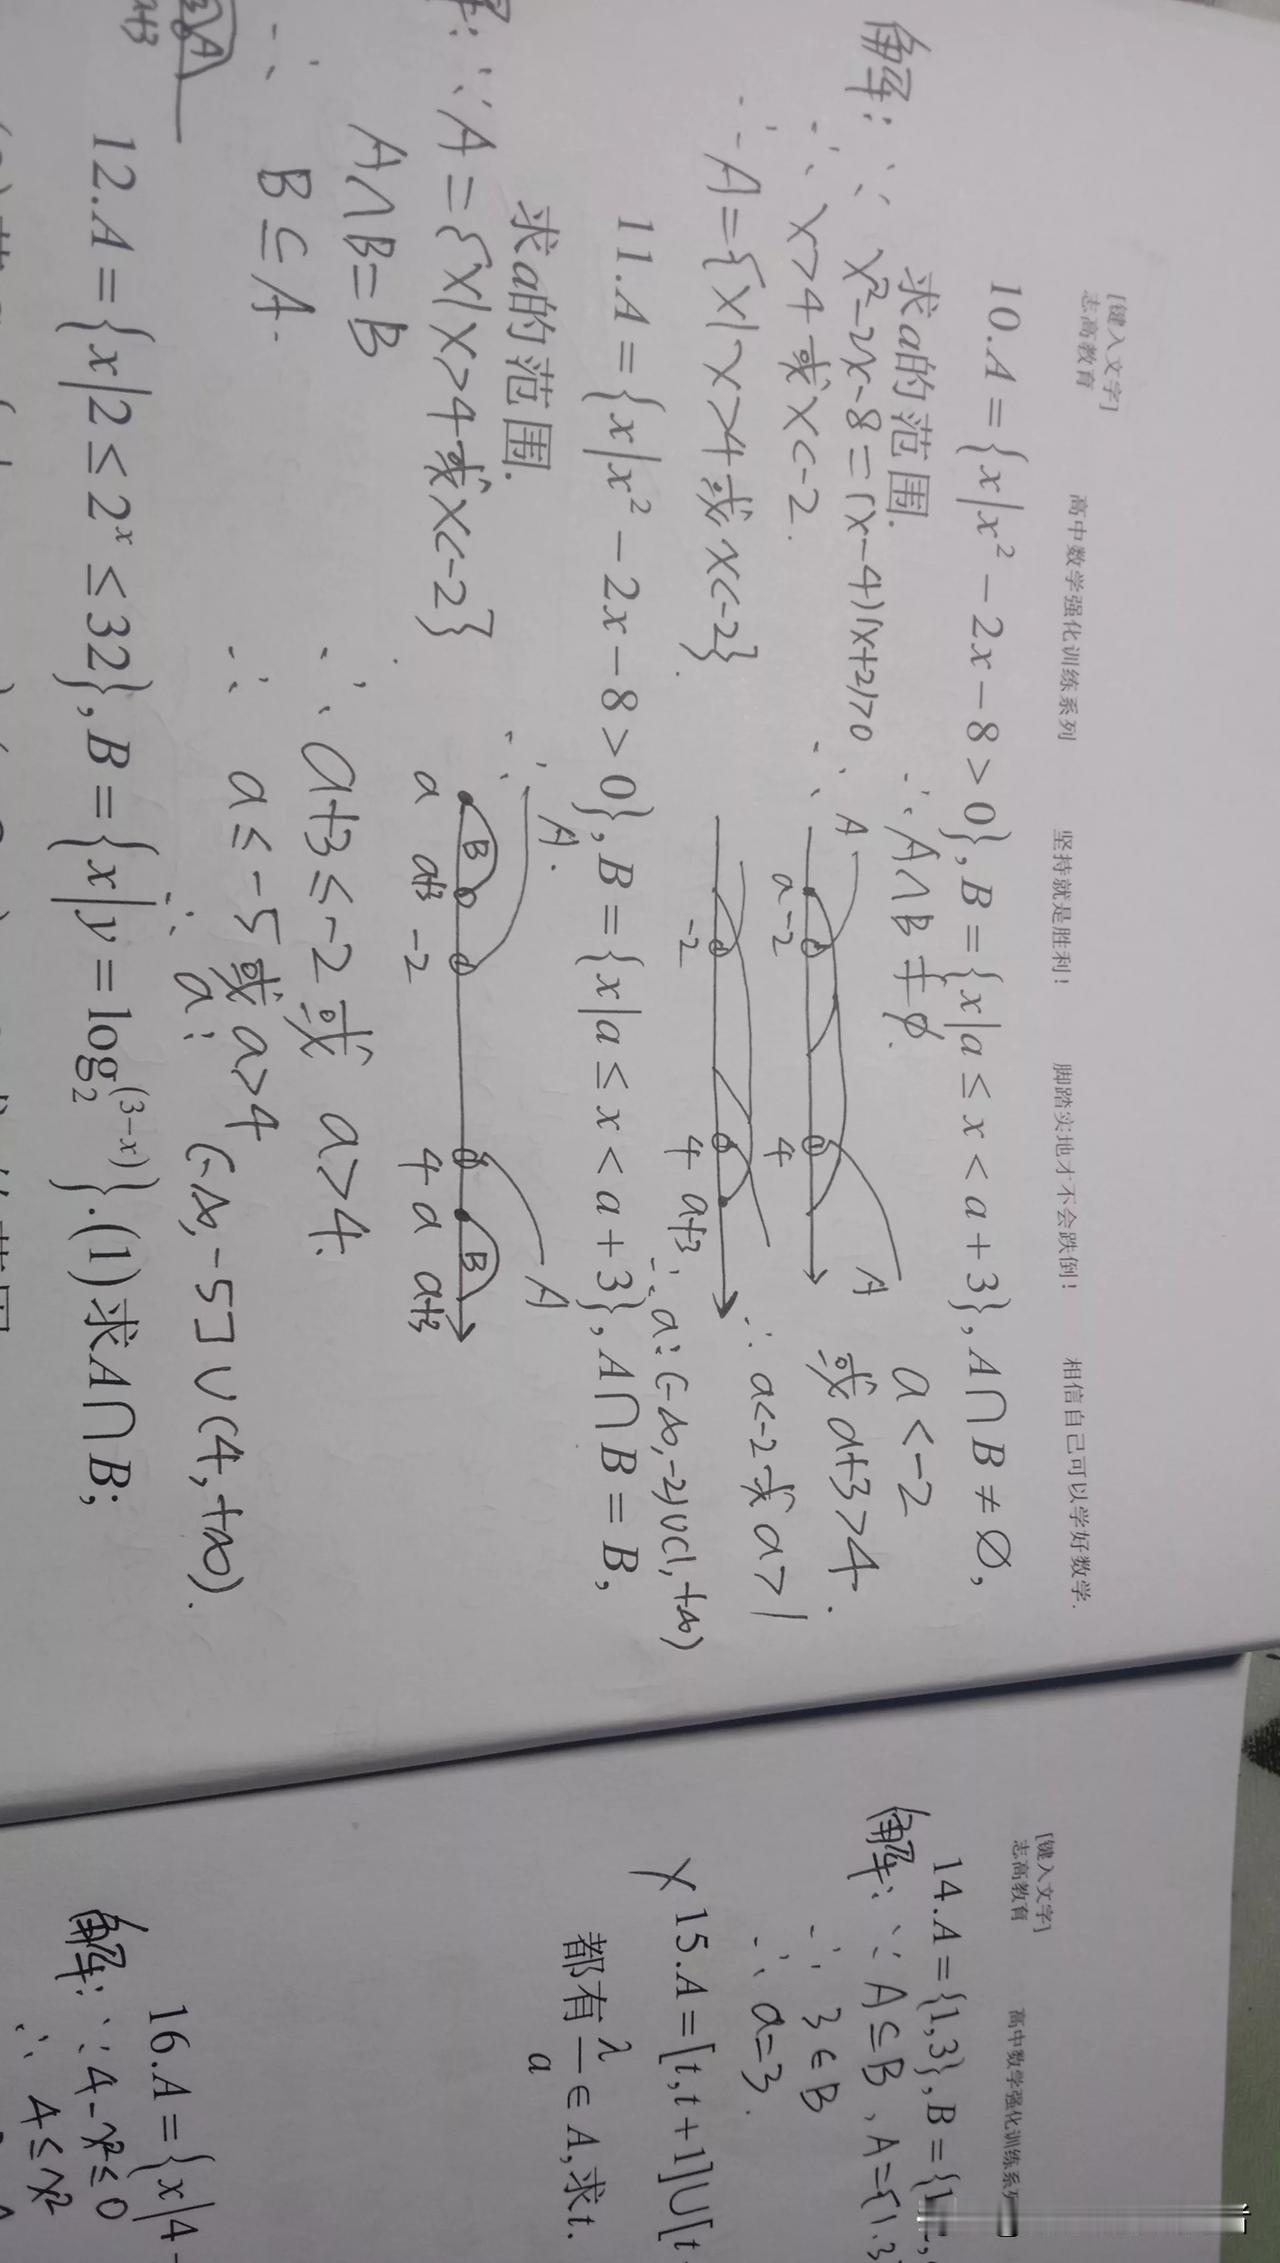 [键入文字]
志高教育 高中数学强化训练系列 坚持就是胜利! 脚踏实地才不会跌倒! 相信自己可以学好数学.
10.A={x|x²-2x-8>0},B={x|a≤x<a+3},A∩B≠∅,
求a的范围.
解:∵x²-2x-8=(x-4)(x+2)>0
∴x>4或x<-2.
∴A={x|x>4或x<-2}.
∵A∩B≠∅.
∴A
A
a -2 4
-2 4 a+3
a<-2
或a+3>4.
∴a<-2或a>1
∴a:(-∞,-2)∪(1,+∞)
11.A={x|x²-2x-8>0},B={x|a≤x<a+3},A∩B=B,
求a的范围.
解:∵A={x|x>4或x<-2}
A∩B=B
∴B⊆A.
∴
A.
A
B
B
a a+3 -2 4 a a+3
∴a+3≤-2或a>4.
∴a≤-5或a>4
∴a:(-∞,-5]∪(4,+∞).
A
a+3
12.A={x|2≤2ˣ≤32},B={x|y=log₂⁽³⁻ˣ⁾}.(1)求A∩B;
[键入文字]
志高教育 高中数学强化训练系列
14.A={1,3},B={1,
解:∵A⊆B,A={1.3
∴3∈B
∴a=3.
X 15.A=[t,t+1]∪[t
都有λ/a∈A,求t.
16.A={x|4-
解:∵4-x²≤0
∴4≤x²